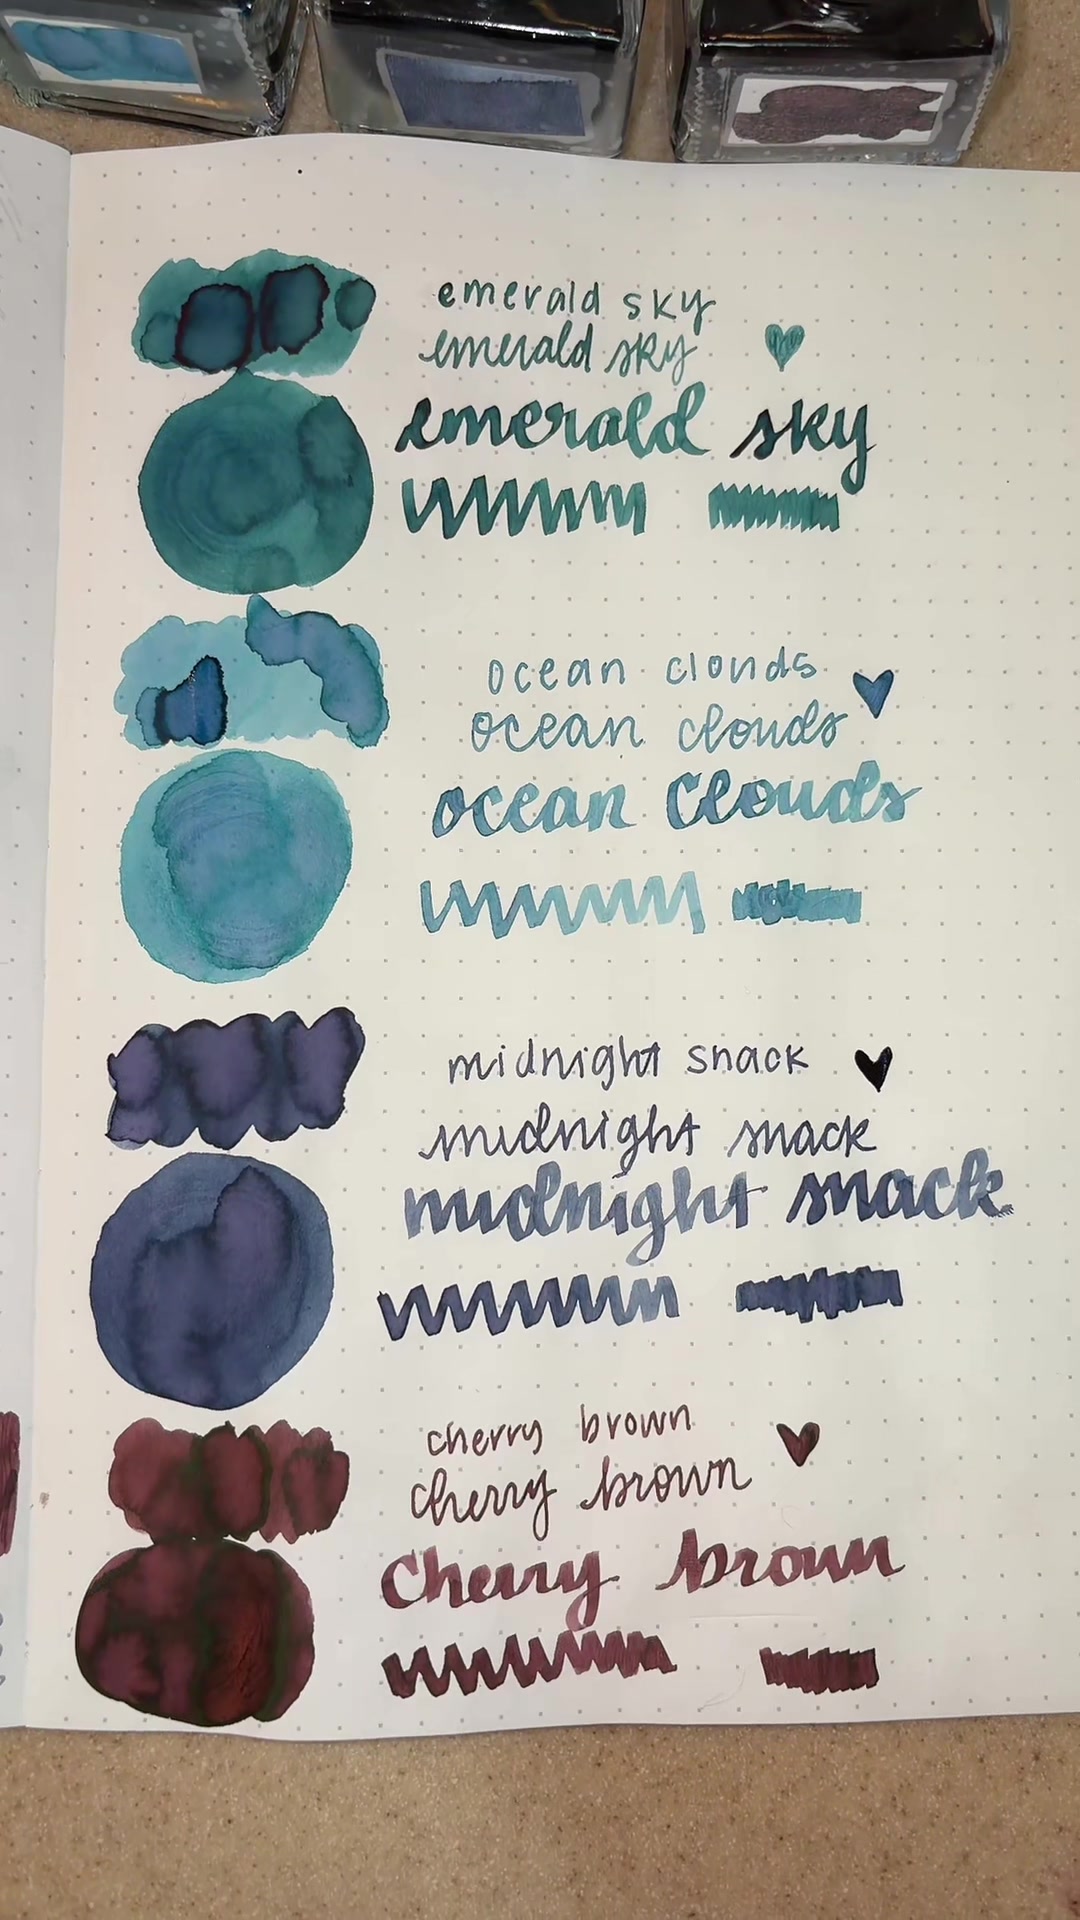 emerald sky
emerald sky
emerald sky
ocean clouds
ocean clouds
ocean clouds
midnight snack
midnight snack
midnight snack
cherry brown
cherry brown
Cherry brown